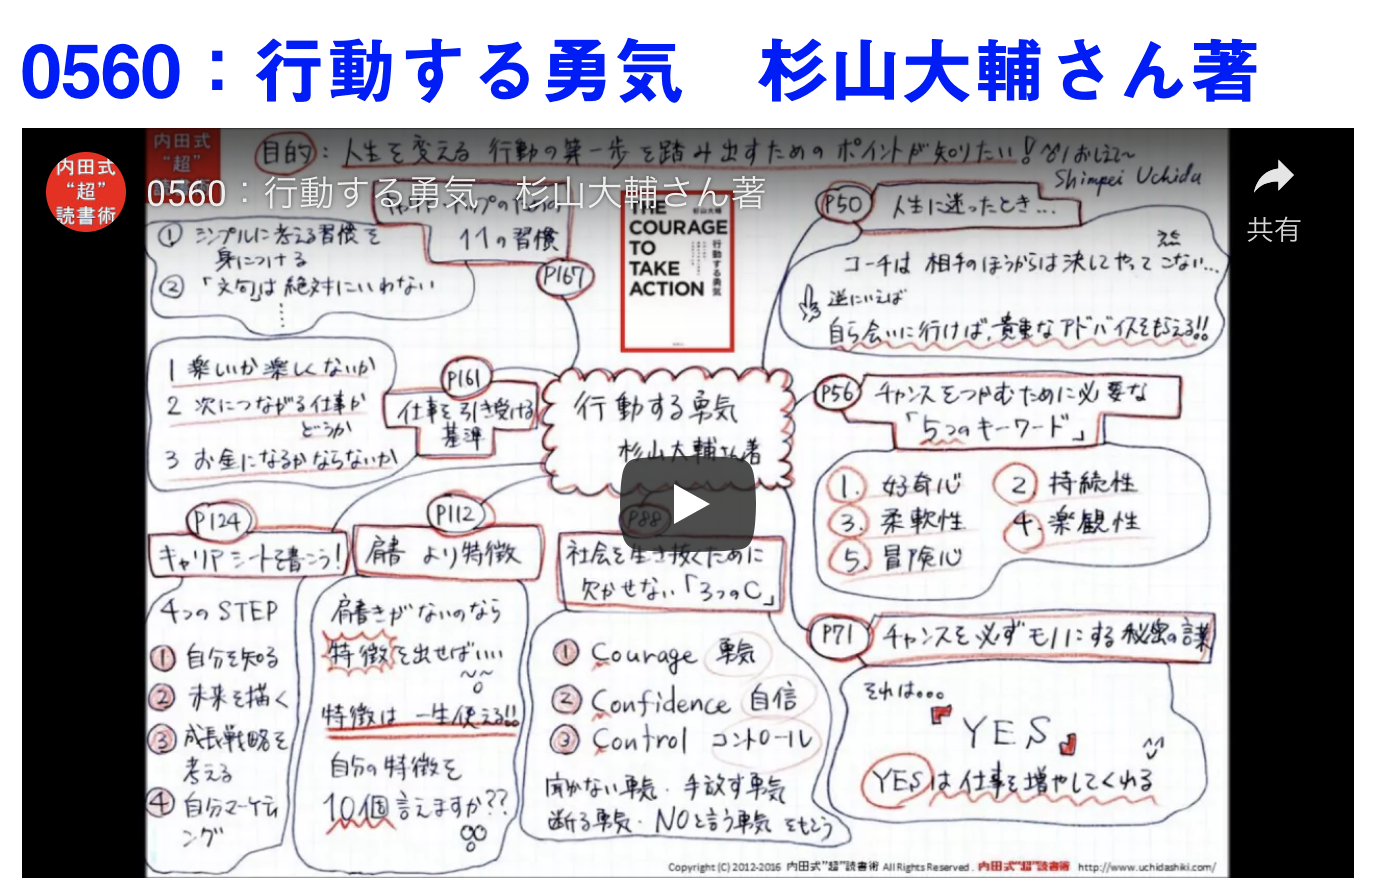 0560：行動する勇気　杉山大輔さん著
内田式
“超”
読書術
0560：行動する勇気　杉山大輔さん著
共有
内田式
“超”
目的：人生を変える 行動の第一歩を踏み出すための ポイントが知りたい！おしえて～
Shimpei Uchida
11の習慣
P167
① シンプルに考える習慣を
身につける
② 「文句」は絶対にいわない
THE
COURAGE
TO
TAKE
ACTION
杉山大輔
行動する勇気
P50
人生に迷ったとき…
コーチは 相手のほうからは決してやってこない…
逆にいえば
自ら会いに行けば、貴重なアドバイスをもらえる!!
P161
仕事を引き受ける
基準
1 楽しいか楽しくないか
2 次につながる仕事か
どうか
3 お金になるかならないか
行動する勇気
杉山大輔さん著
P56
チャンスをつかむために必要な
「5つのキーワード」
1. 好奇心
2. 持続性
3. 柔軟性
4. 楽観性
5. 冒険心
P124
キャリアシートを書こう!
4つのSTEP
① 自分を知る
② 未来を描く
③ 成長戦略を
考える
④ 自分マーケティ
ング
P112
肩書 より特徴
肩書きがないのなら
特徴を出せばいい
特徴は 一生使える!!
自分の特徴を
10個言えますか??
P88
社会を生き抜くために
欠かせない「3つのC」
① Courage 勇気
② Confidence 自信
③ Control コントロール
聞かない勇気・手放す勇気
断る勇気・NOと言う勇気をもとう
P71
チャンスを必ずモノにする秘密の言葉
それは…
『YES』
YESは仕事を増やしてくれる
Copyright (C) 2012-2016 内田式“超”読書術 All Rights Reserved . 内田式“超”読書術 http://www.uchidashiki.com/